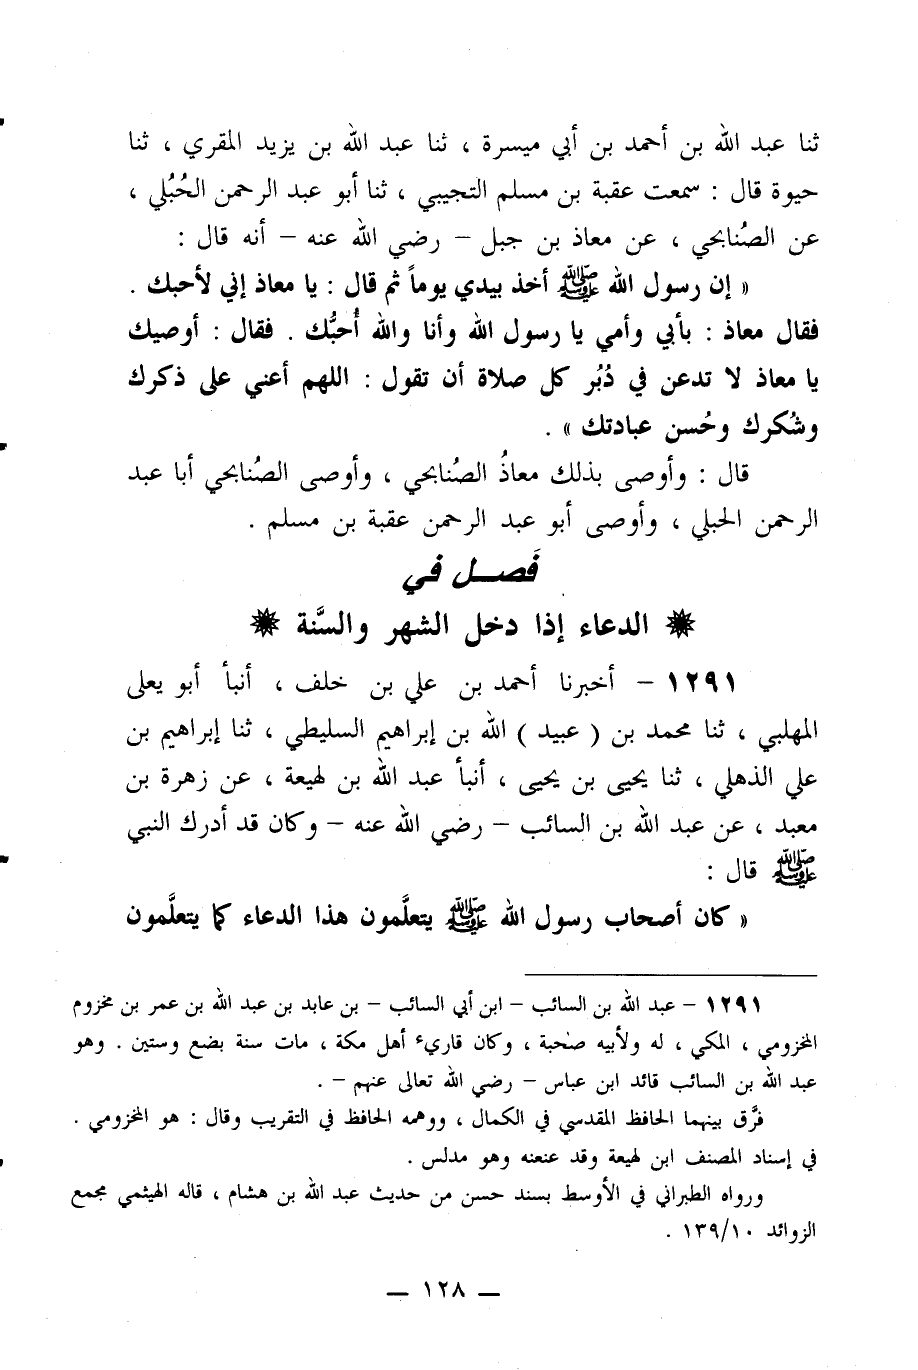 ثنا عبد الله بن أحمد بن أبي ميسرة ، ثنا عبد الله بن يزيد المقري ، ثنا
حيوة قال : سمعت عقبة بن مسلم التجيبي ، ثنا أبو عبد الرحمن الحُبُلي ،
عن الصُنابحي ، عن معاذ بن جبل – رضي الله عنه – أنه قال :
« إن رسول الله ﷺ أخذ بيدي يوماً ثم قال : يا معاذ إني لأحبك .
فقال معاذ : بأبي وأمي يا رسول الله وأنا والله أُحبُّك . فقال : أوصيك
يا معاذ لا تدعن في دُبُر كل صلاة أن تقول : اللهم أعني على ذكرك
وشُكرك وحُسن عبادتك » .
قال : وأوصى بذلك معاذُ الصُنابحي ، وأوصى الصُنابحي أبا عبد
الرحمن الحبلي ، وأوصى أبو عبد الرحمن عقبة بن مسلم .
فَصــل في
الدعاء إذا دخل الشهر والسَّنة
١٢٩١ – أخبرنا أحمد بن علي بن خلف ، أنبأ أبو يعلى
المهلبي ، ثنا محمد بن ( عبيد ) الله بن إبراهيم السليطي ، ثنا إبراهيم بن
علي الذهلي ، ثنا يحيى بن يحيى ، أنبأ عبد الله بن لهيعة ، عن زهرة بن
معبد ، عن عبد الله بن السائب – رضي الله عنه – وكان قد أدرك النبي
ﷺ قال :
« كان أصحاب رسول الله ﷺ يتعلَّمون هذا الدعاء كما يتعلَّمون
١٢٩١ – عبد الله بن السائب – ابن أبي السائب – بن عابد بن عبد الله بن عمر بن مخزوم
المخزومي ، المكي ، له ولأبيه صُحبة ، وكان قاريء أهل مكة ، مات سنة بضع وستين . وهو
عبد الله بن السائب قائد ابن عباس – رضي الله تعالى عنهم – .
فرَّق بينهما الحافظ المقدسي في الكمال ، ووهمه الحافظ في التقريب وقال : هو المخزومي .
في إسناد المصنف ابن لهيعة وقد عنعنه وهو مدلس .
ورواه الطبراني في الأوسط بسند حسن من حديث عبد الله بن هشام ، قاله الهيثمي مجمع
الزوائد ١٣٩/١٠ .
— ١٢٨ —